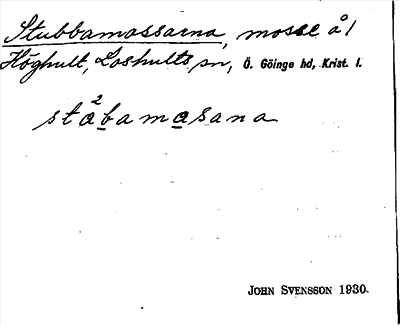 Stubbamossarna, mosse å 1
Höghult, Loshults sn, Ö. Göinge hd, Krist. l.
stå²bamåsana
JOHN SVENSSON 1930.